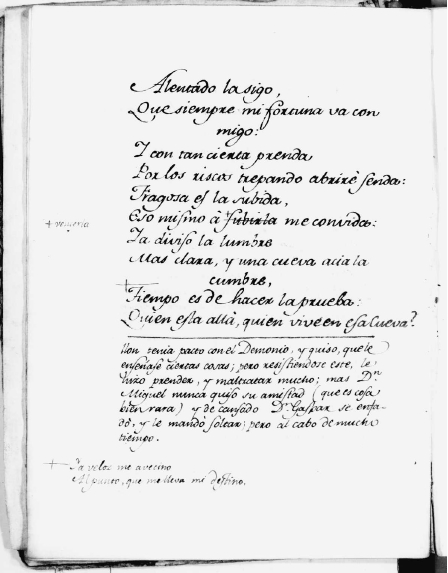 Alentado la sigo,
Que siempre mi fortuna va con
migo:
I con tan cierta prenda
Por los riscos trepando abrirè senda:
Fragosa es la subida,
Eso mismo à subirla me convida:
+ venceria
Ia diviso la lumbre
Mas clara, y una cueva acia la
cumbre,
Tiempo es de hacer la prueba:
Quien esta allà, quien vive en esa cueva?
tenia pacto con el Demonio, y quiso, que le
enseñase ciertas cosas; pero resistiendose este, le
hizo prender, y maltratar mucho; mas Dn
Miguel nunca quiso su amistad (que es cosa
bien rara) y de cansado Dn Gaspar se enfa-
dò, y le mandò soltar: pero al cabo de mucho
tiempo.
+ Ia veloz me avecino
Al punto, que me lleva mi destino.